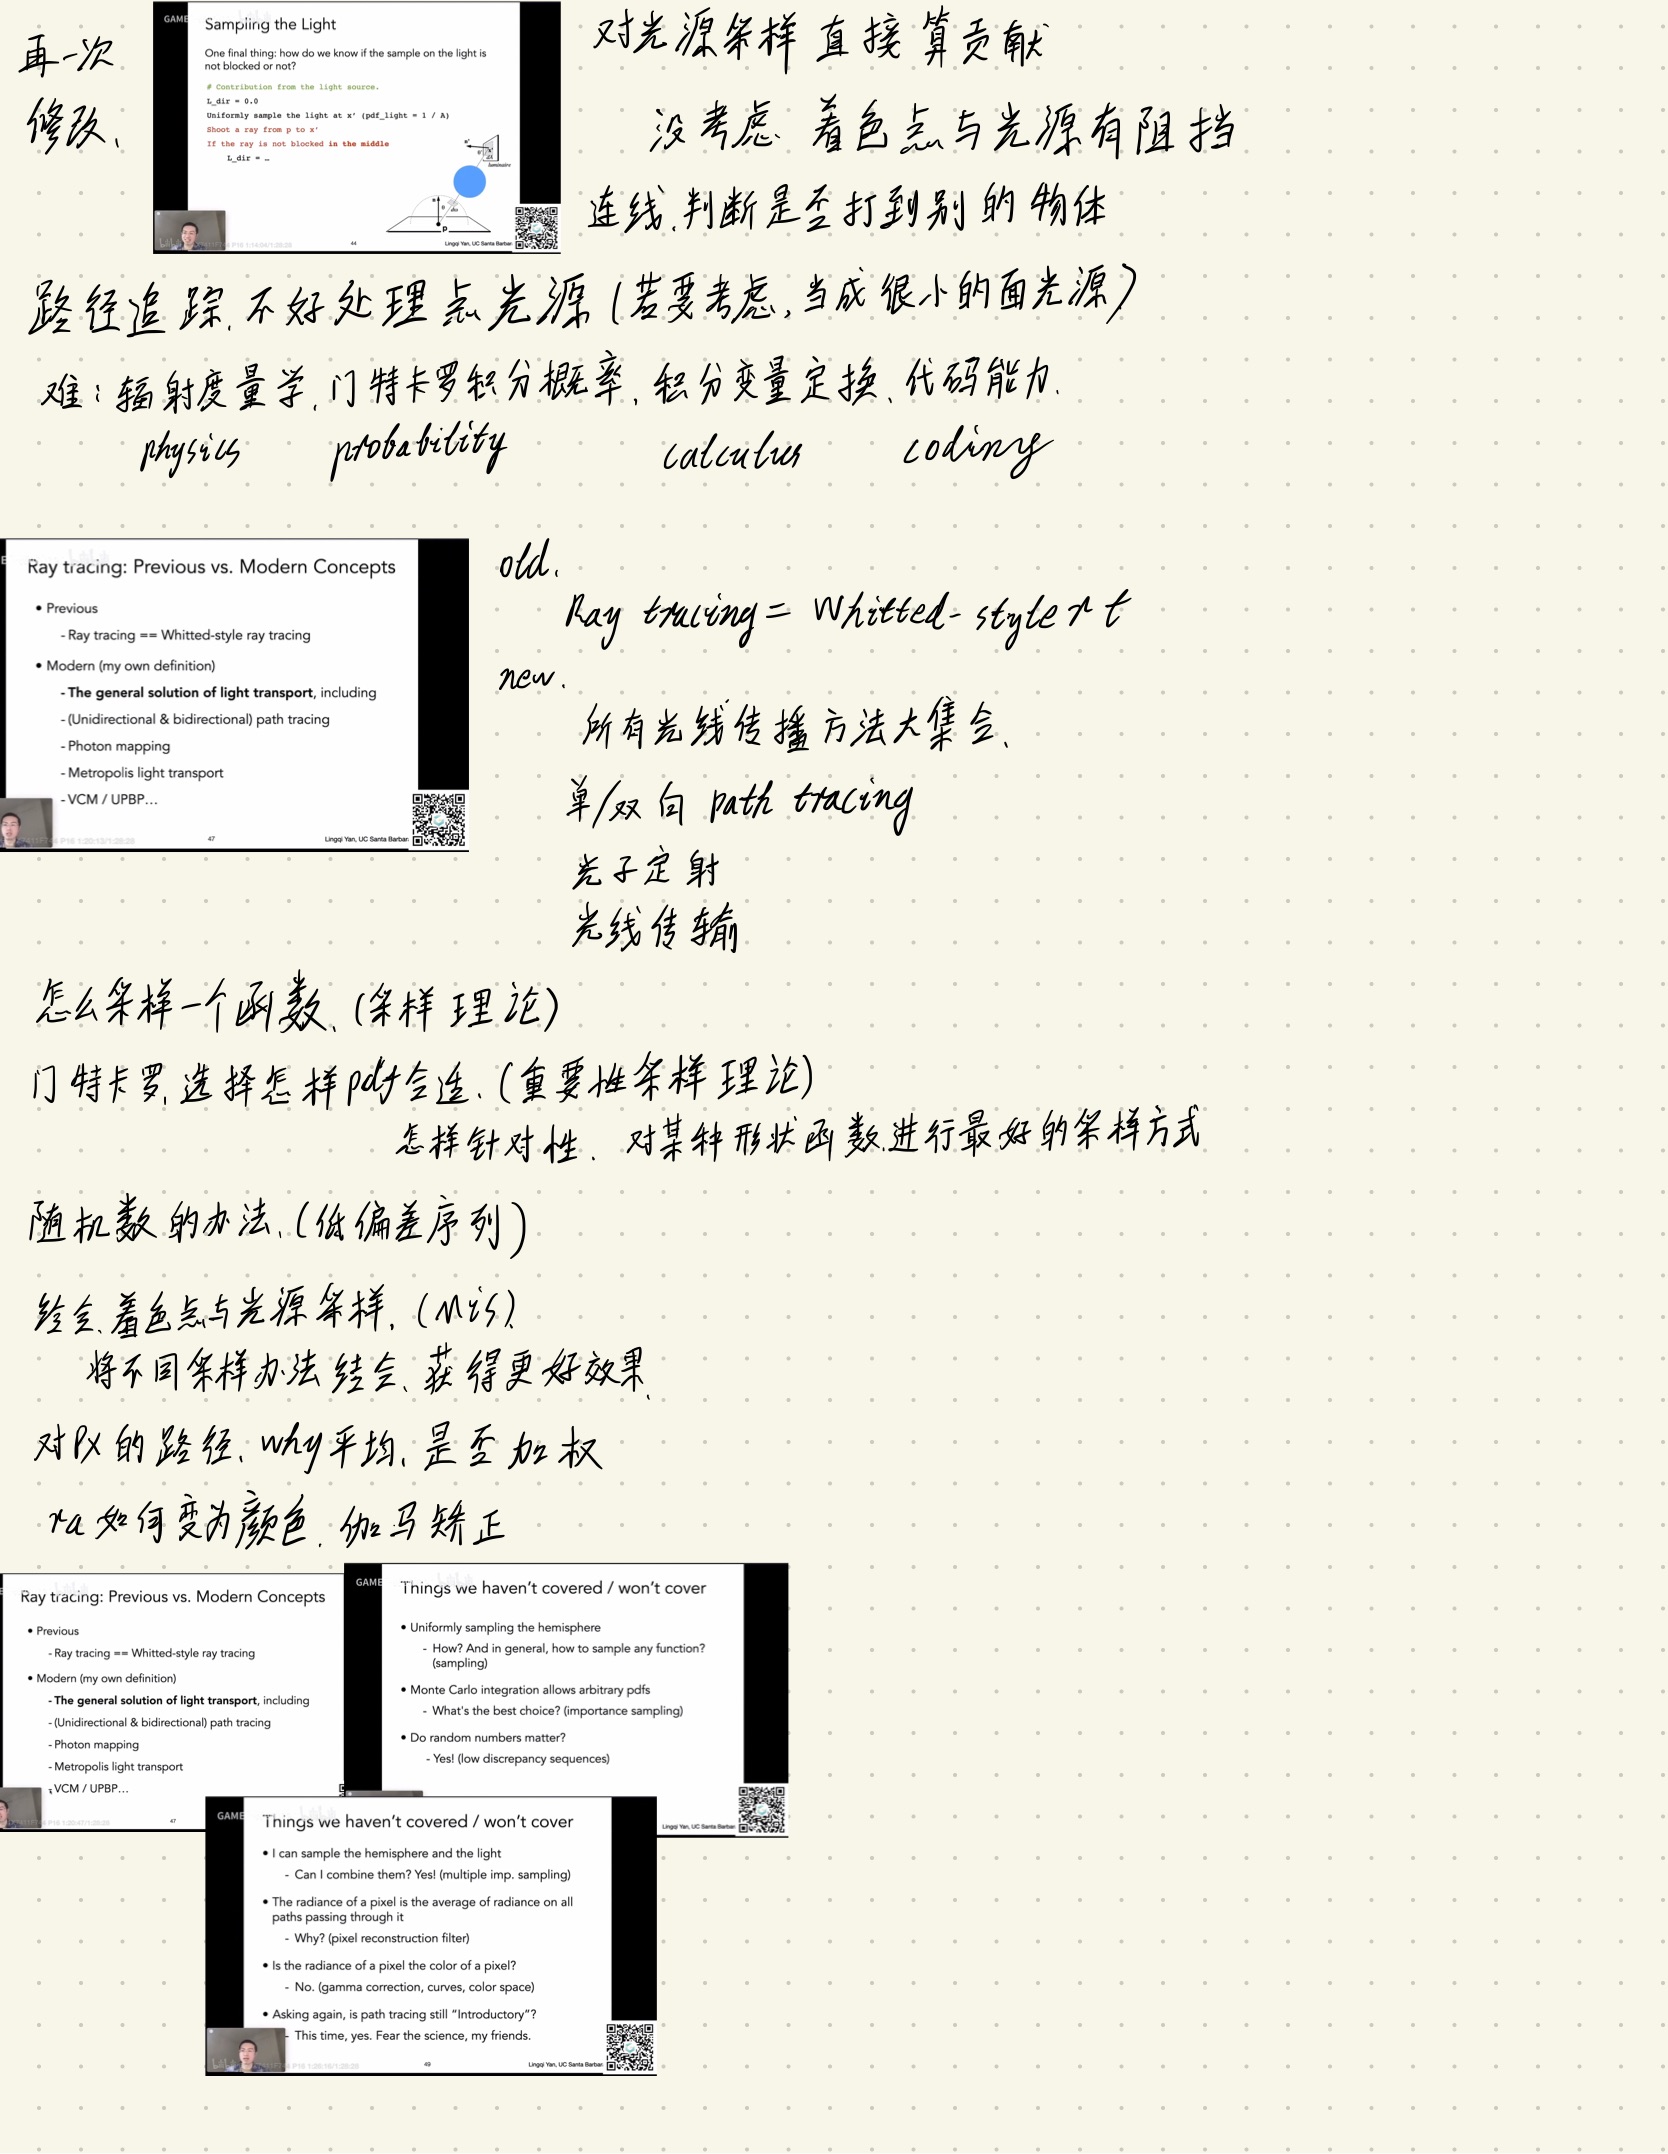 再一次
修改、
GAME
Sampling the Light
One final thing: how do we know if the sample on the light is
not blocked or not?
# Contribution from the light source.
L_dir = 0.0
Uniformly sample the light at x’ (pdf_light = 1 / A)
Shoot a ray from p to x’
If the ray is not blocked in the middle
L_dir = …
luminaire
p
44
Lingqi Yan, UC Santa Barbar
对光源采样 直接算贡献
没考虑 着色点与光源有阻挡
连线、判断是否打到别的物体
路径追踪、不好处理点光源(若要考虑,当成很小的面光源)
难:辐射度量学、门特卡罗积分概率、积分变量定换、代码能力.
physics probability calculus coding
Ray tracing: Previous vs. Modern Concepts
• Previous
- Ray tracing == Whitted-style ray tracing
• Modern (my own definition)
- The general solution of light transport, including
- (Unidirectional & bidirectional) path tracing
- Photon mapping
- Metropolis light transport
- VCM / UPBP…
47
Lingqi Yan, UC Santa Barbar
old.
Ray tracing = Whitted-style r t
new.
所有光线传播方法大集合、
单/双向 path tracing
光子定射
光线传输
怎么采样一个函数、(采样理论)
门特卡罗、选择怎样pdf合适、(重要性采样理论)
怎样针对性、对某种形状函数、进行最好的采样方式
随机数的办法、(低偏差序列)
结合、着色点与光源采样、(Mis)、
将不同采样办法结合、获得更好效果、
对PX的路径、why平均、是否加权
ra如何变为颜色、伽马矫正
Ray tracing: Previous vs. Modern Concepts
• Previous
- Ray tracing == Whitted-style ray tracing
• Modern (my own definition)
- The general solution of light transport, including
- (Unidirectional & bidirectional) path tracing
- Photon mapping
- Metropolis light transport
- VCM / UPBP…
47
GAME
Things we haven’t covered / won’t cover
• Uniformly sampling the hemisphere
- How? And in general, how to sample any function?
(sampling)
• Monte Carlo integration allows arbitrary pdfs
- What's the best choice? (importance sampling)
• Do random numbers matter?
- Yes! (low discrepancy sequences)
Lingqi Yan, UC Santa Barbar
GAME
Things we haven’t covered / won’t cover
• I can sample the hemisphere and the light
- Can I combine them? Yes! (multiple imp. sampling)
• The radiance of a pixel is the average of radiance on all
paths passing through it
- Why? (pixel reconstruction filter)
• Is the radiance of a pixel the color of a pixel?
- No. (gamma correction, curves, color space)
• Asking again, is path tracing still “Introductory”?
- This time, yes. Fear the science, my friends.
49
Lingqi Yan, UC Santa Barbar